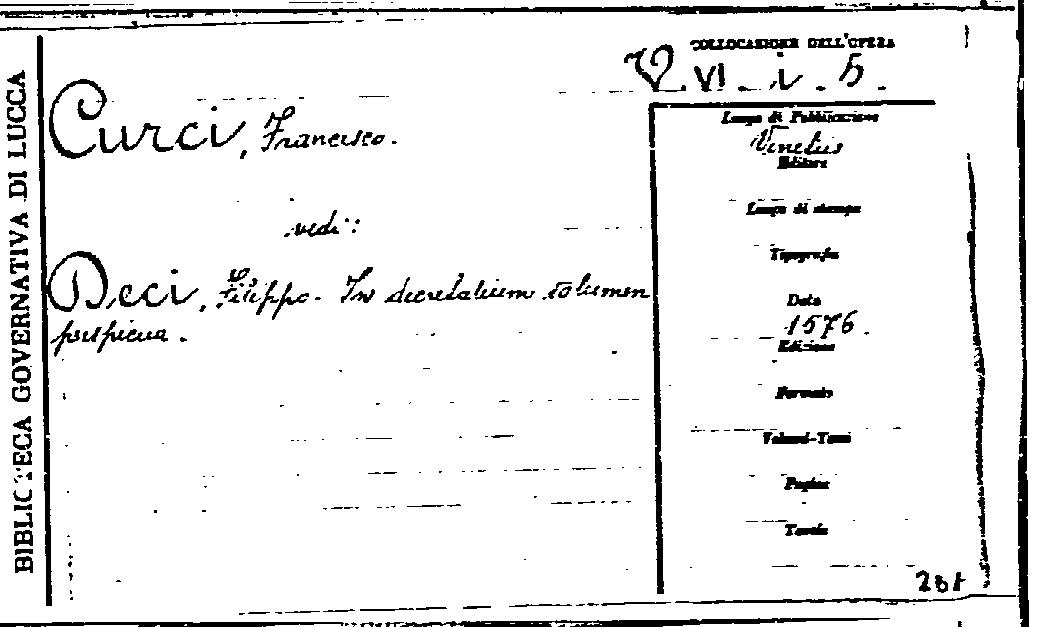 BIBLIOTECA GOVERNATIVA DI LUCCA
COLLOCAZIONE DELL'OPERA
VI . i . 5 .
Curci, Francisco.
vedi:
Deci, Filippo. In decretalium volumen
perspicua.
Luogo di Pubblicazione
Venetiis
Editore
Luogo di stampa
Tipografia
Data
1576.
Edizione
Formato
Volumi-Tomi
Pagine
Tavole